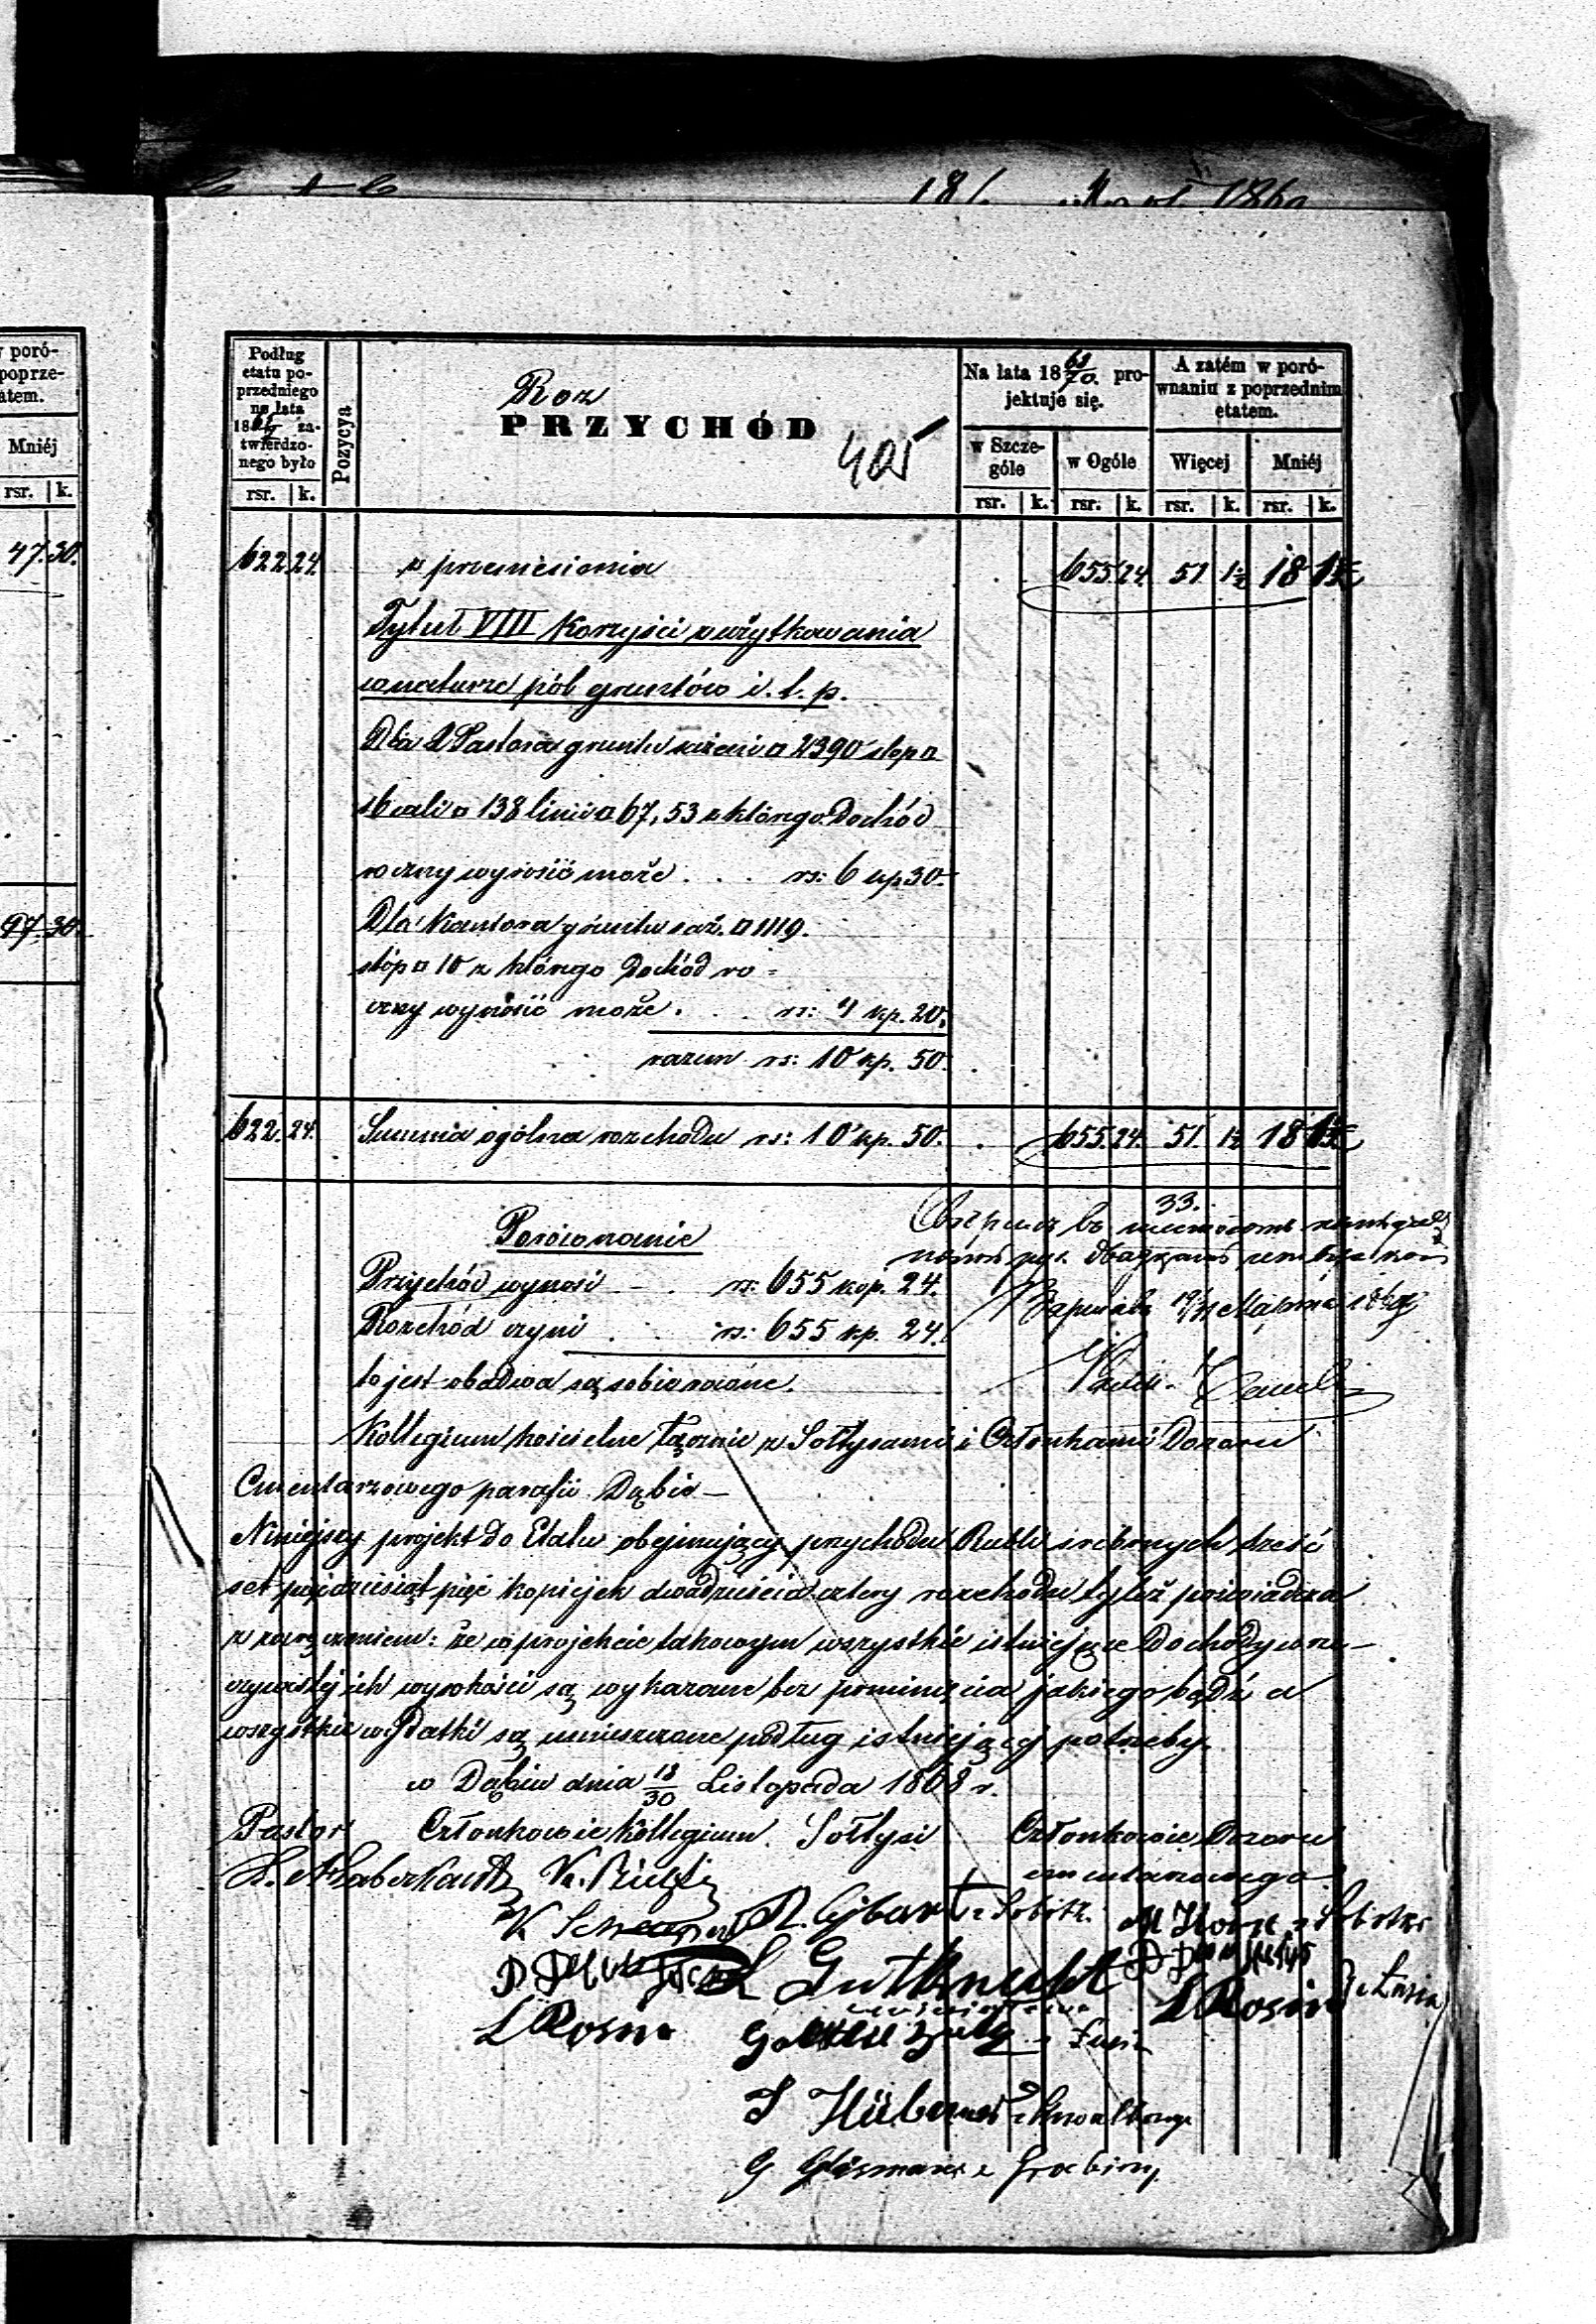 w poró-
poprze-
atem.
Mniéj
rsr. k.
47. 30.
97. 30.
Podług
etatu po-
przedniego
na lata
18 za-
twierdzo-
nego było
rsr. k.
Pozycya
Roz
PRZYCHÓD
405
Na lata 18 69/70. pro-
jektuje się.
w Szcze-
góle
w Ogóle
rsr. k. rsr. k.
A zatém w poró-
wnaniu z poprzednim
etatem.
Więcej Mniéj
rsr. k. rsr. k.
622 24 z przeniesienia 655 24 51 1½ 18 1½
Tytuł VIII Korzyści z użytkowania
w naturze pól gruntów i. t. p.
Dla Pastora gruntu sążeni □ 2390 stop □
16 cali □ 138 linii □ 67,53 z którego Dochód
roczny wynosić może . . . rs: 6 kp 30.
Dla Kantora gruntu saż. □ 1119.
stóp □ 10 z którego Dochód ro=
czny wynosić może . . . rs: 4 kp. 20.
razem rs: 10 kp. 50.
622. 24. Summa ogólna rozchodu rs: 10 kp. 50. 655. 24. 51. 1½ 18 1½
Porównanie
33.
Przychód wynosi — . rs: 655 kop. 24.
Rozchód czyni . . . rs: 655 kp. 24.
Варшава Марта
to jest obadwa są sobie równe.
Kollegium kościelne łącznie z Sołtysami i Członkami Dozoru
Cmentarzowego parafii Dąbie —
Niniejszy projekt do Etatu obejmujący przychodu Rubli srebrnych sześć
set pięćdziesiąt pięć kopiejek dwadzieścia cztery rozchodu tyleż poświadcza
z zaręczeniem: że w projekcie takowym wszystkie istniejące Dochody w rze-
czywistej ich wysokości są wykazane bez pominięcia jakiego bądź a
wszystkie wydatki są umieszczone podług istniejącej potrzeby.
w Dąbiu dnia 18/30 Listopada 1868 r.
Pastor Członkowie Kollegium. Sołtysi Członkowie Dozoru
cmentarzowego
L. Gutknecht
L Rosin
L Rosin
J Hübner
G Glismann z Grabiny